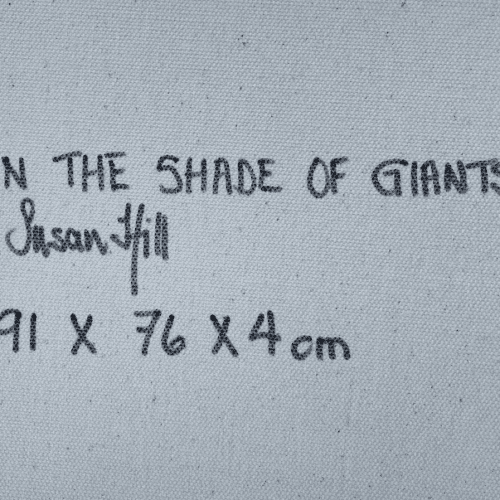 N THE SHADE OF GIANTS
Susan Hill
91 X 76 X 4 cm